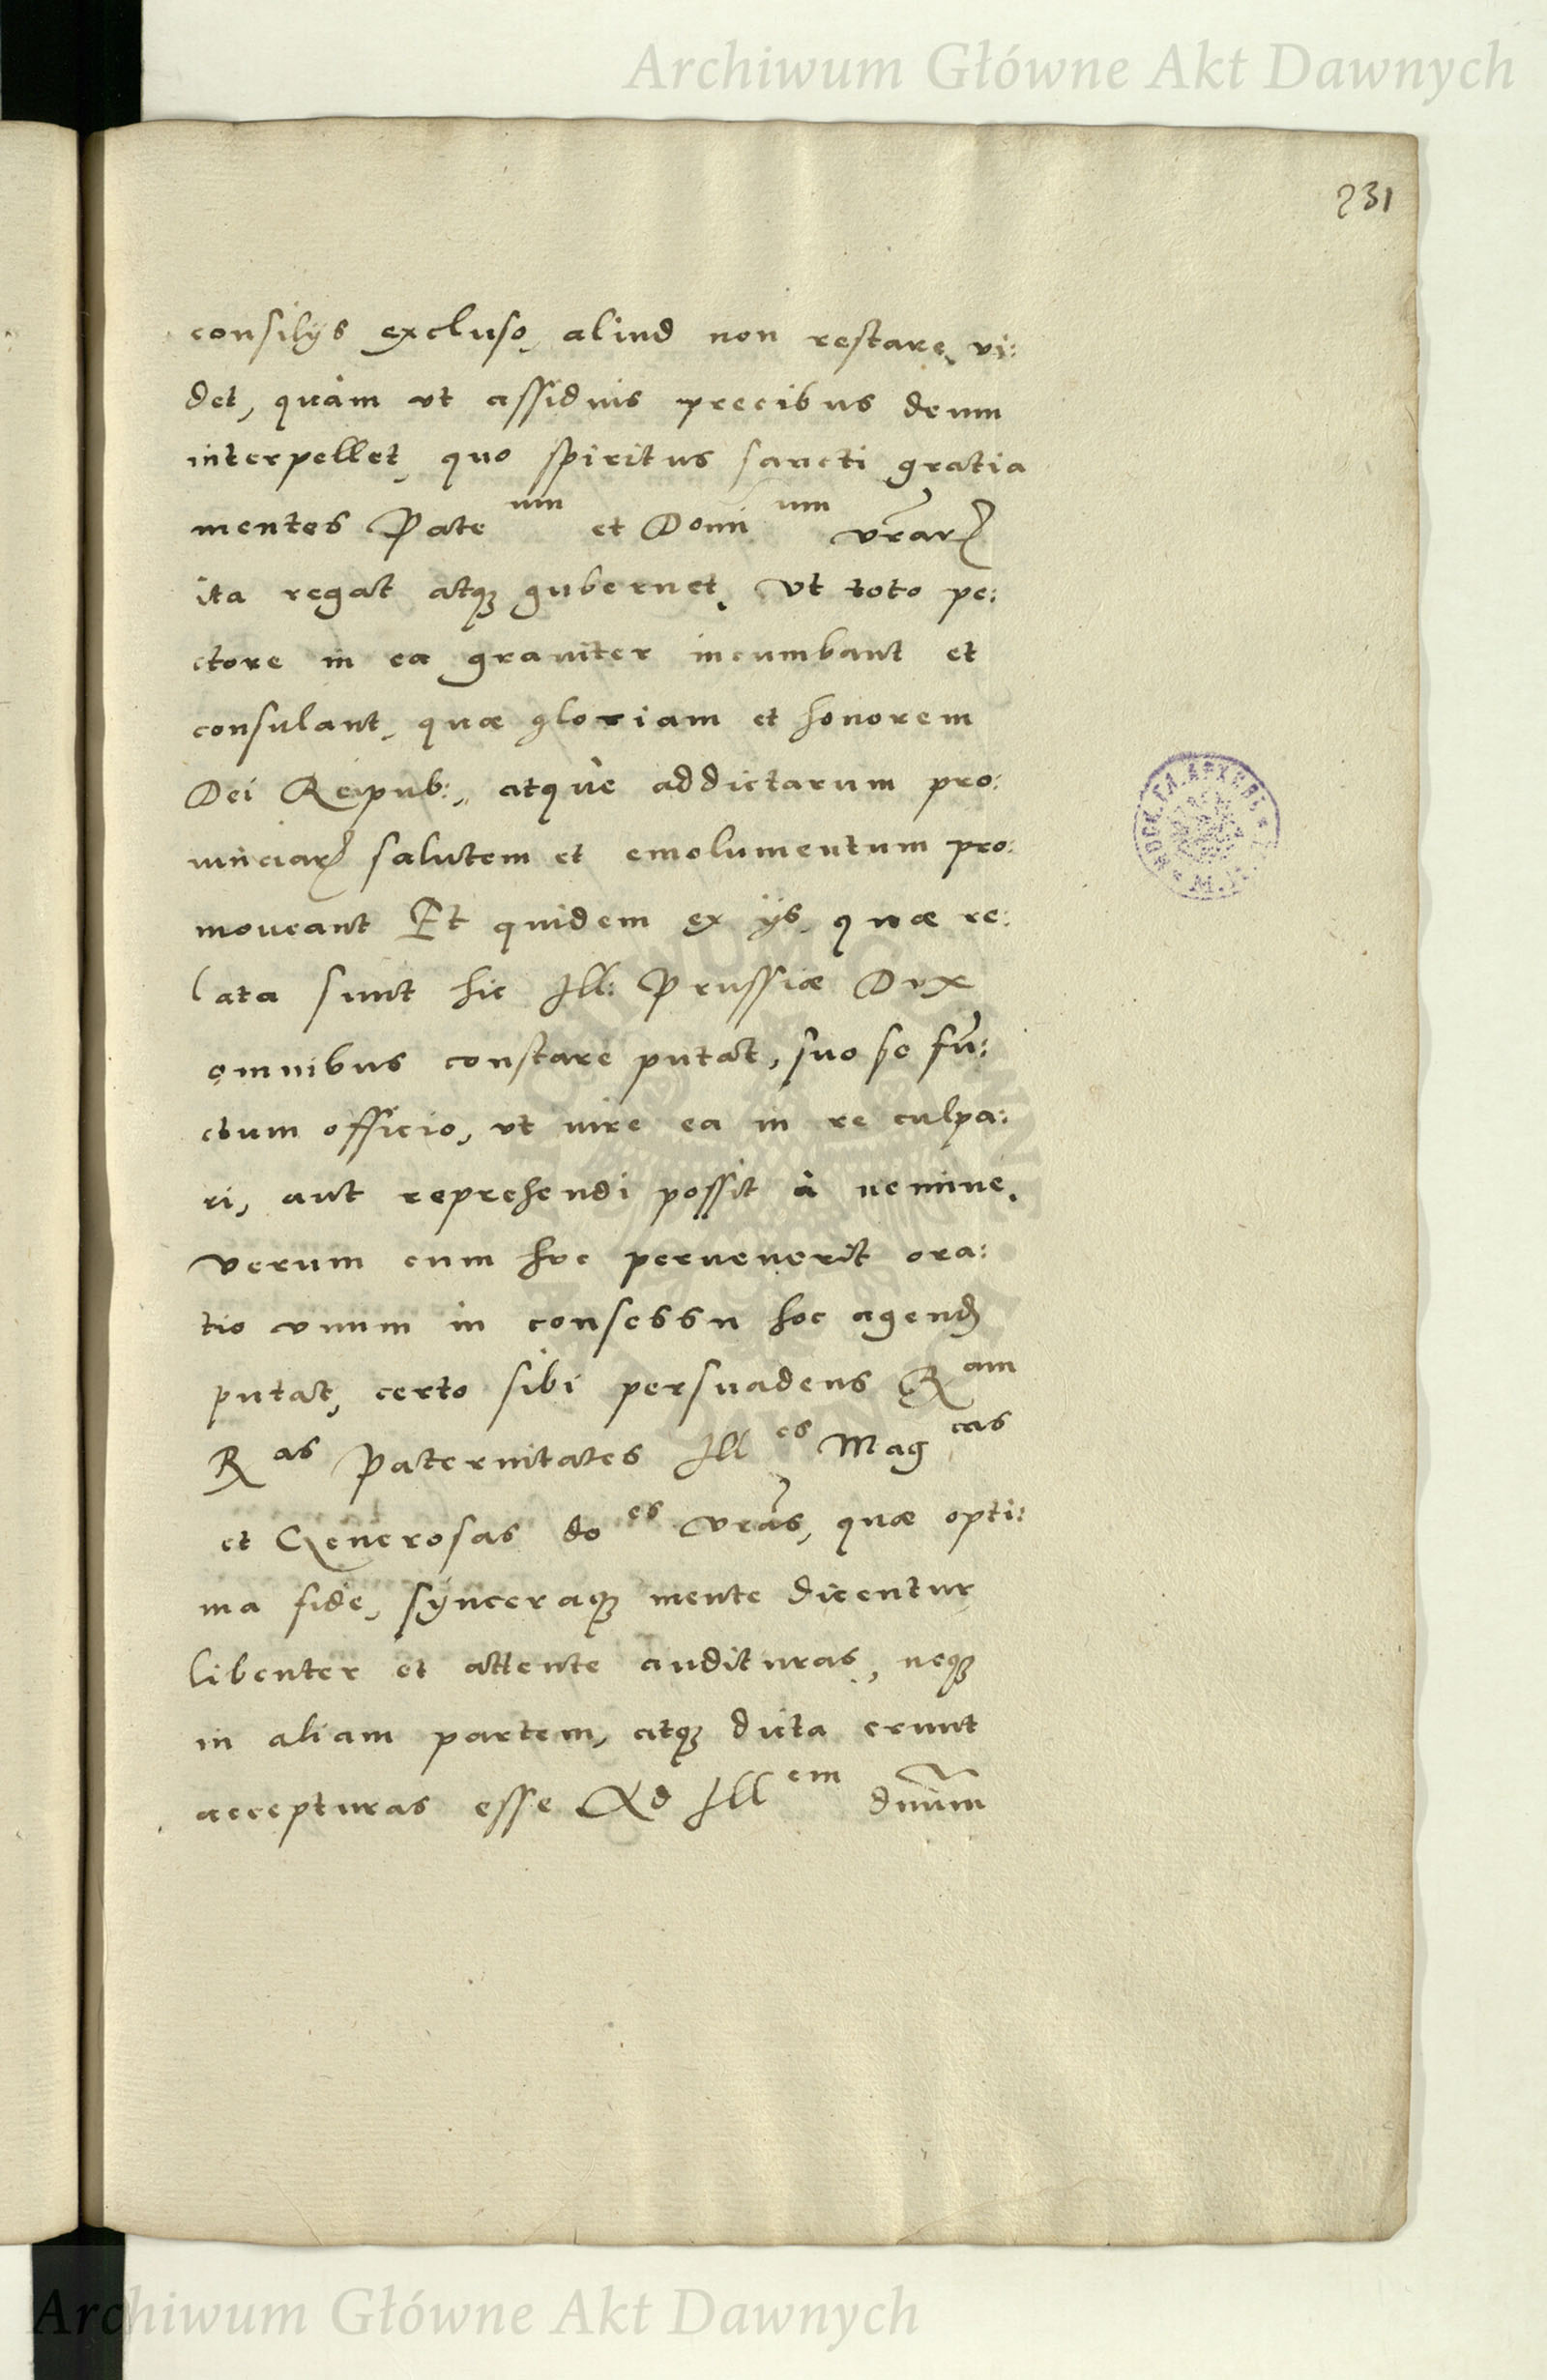 Archiwum Główne Akt Dawnych
231
consilÿs excluso, aliud non restare vi:
det, quàm ut assiduis precibus deum
interpellet, quo spiritus sancti gratia
mentes Pate um et Domi um vrãrꝝ
ita regat atqꝫ gubernet, ut toto pe:
ctore in ea grauiter incumbant et
consulant, quæ gloriam et honorem
Dei Reipub:, atque addictarum pro:
uinciarꝝ salutem et emolumentum pro:
moueant Et quidem ex ÿs, quæ re:
lata sunt hic Ill: Prussiæ Dux
omnibus constare putat, suo se fũ:
ctum officio, ut iure ea in re culpa:
ri, aut reprehendi possit à nemine.
verum cum hoc peruenerit ora:
tio unum in consessu hoc agend
putat, certo sibi persuadens R am
R as Paternitates Ill es Mag cas
et Generosas do es vrãs, quæ opti:
ma fide, sÿnceraqꝫ mente dicentur
libenter et attente audituras, neqꝫ
in aliam partem, atqꝫ dicta erunt
accepturas esse Ad Ill em dñum
Archiwum Główne Akt Dawnych